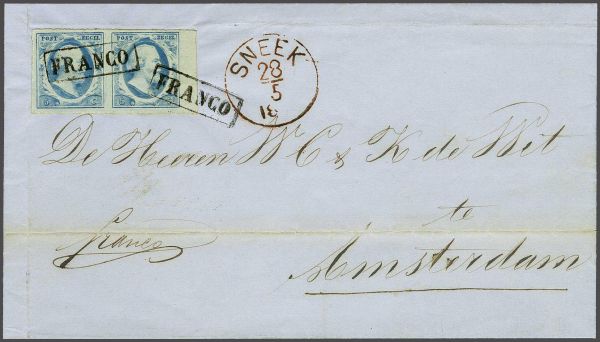 POST ZEGEL POST ZEGEL
FRANCO
FRANCO
SNEEK
28
5
18
De Heeren W C & K de Wit
te
franco
Amsterdam